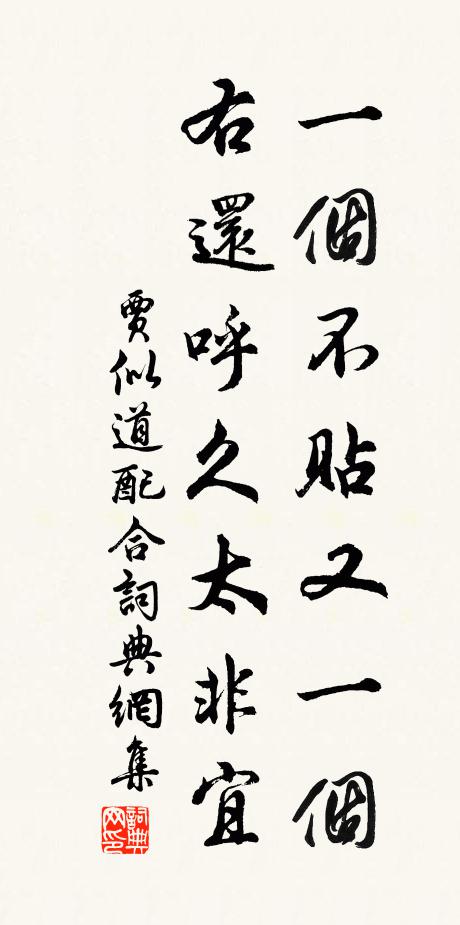 一個不貼又一個
右還呼久太非宜
賈似道配合詞典網集
詞典网印